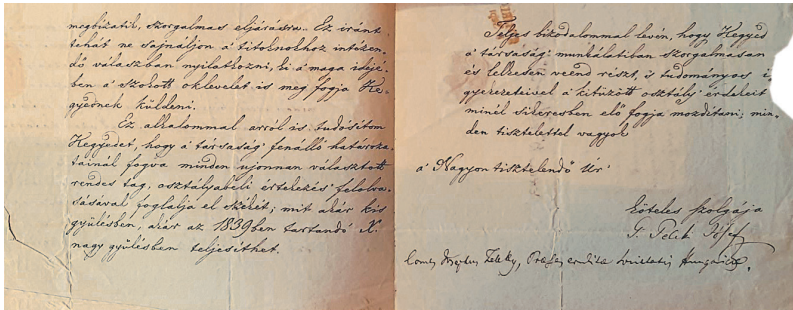 megbizatik, szorgalmas eljárásra. Ez iránt
tehát ne sajnáljon a' titoknokhoz intézen-
dő válaszban nyilatkozni, ki a' maga idejé-
ben a' szokott oklevelet is meg fogja Ke-
gyednek küldeni.
Ez alkalommal arról is tudósítom
Kegyedet, hogy a' társaság' fenálló határoza-
tainál fogva minden ujonnan választott
rendes tag, osztályabeli értekezés' felolva-
sásával foglalja el székét; mit akár kis
gyülésben, akár az 1839ben tartandó X.
nagy gyülésben teljesíthet.
Teljes bizodalommal levén, hogy Kegyed
a' társaság' munkálatiban szorgalmasan
és lelkesen veend részt, 's tudományos i-
gyekezeteivel a' kitüzött osztály' érdekeit
minél sikeresben elő fogja mozdítani; min-
den tisztelettel vagyok
a' Nagyon tisztelendő Úr'
köteles szolgája
G. Teleki József
Comes Josephus Teleky, Præses eruditæ Societatis Hungaricæ.